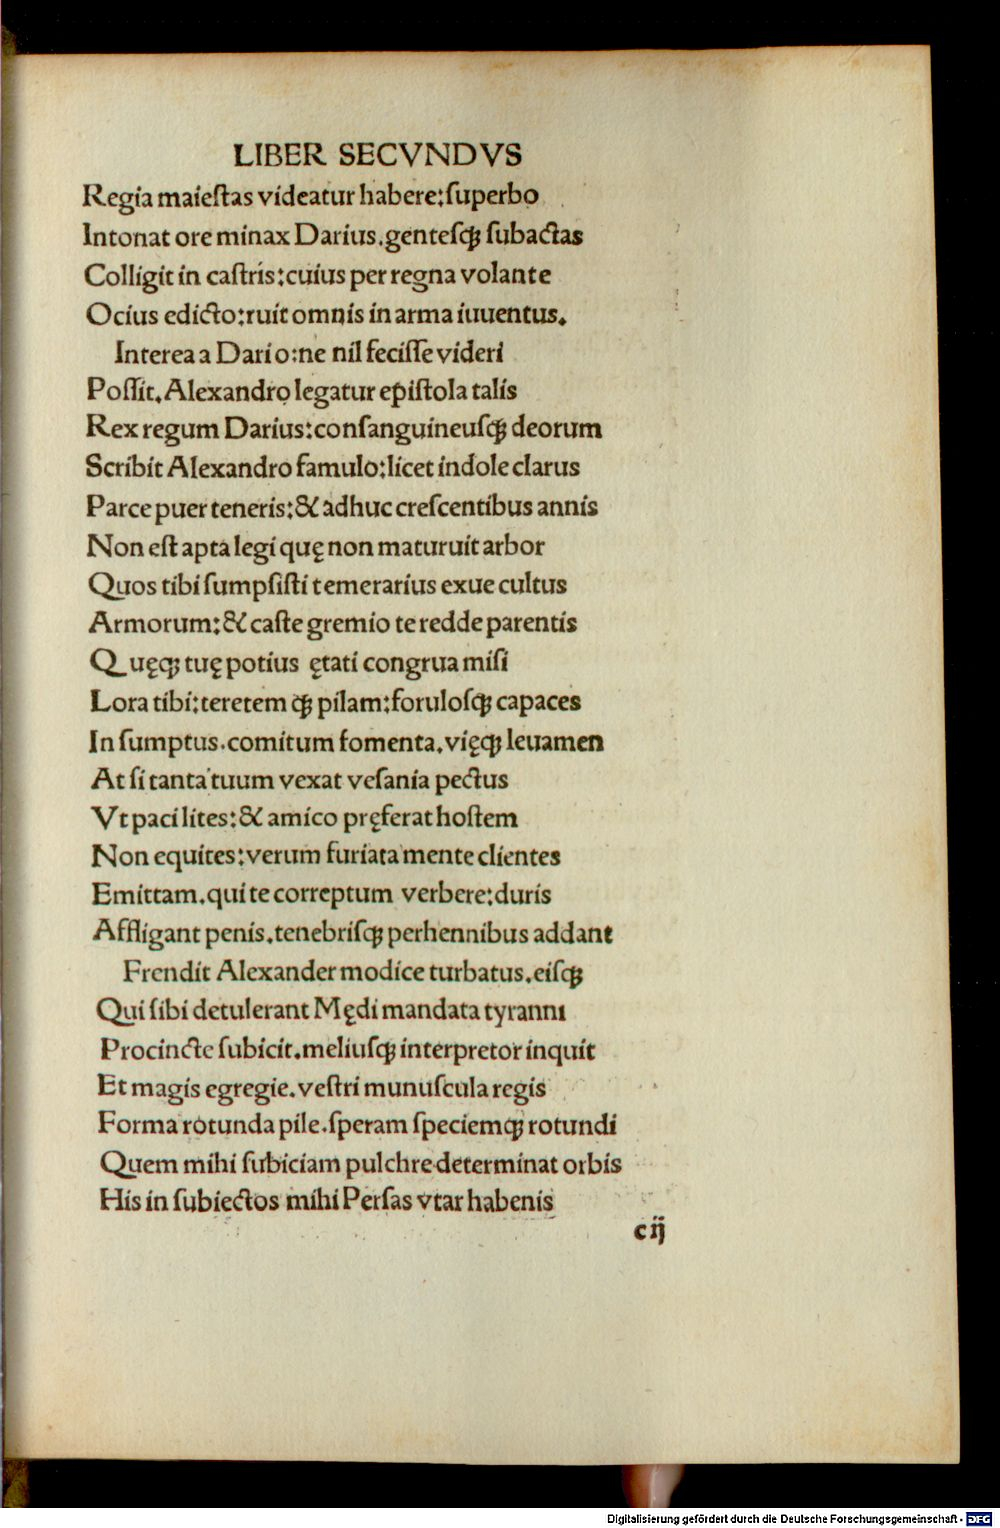 LIBER SECVNDVS
Regia maieſtas videatur habere:ſuperbo
Intonat ore minax Darius.genteſqꝫ ſubactas
Colligit in caſtris:cuius per regna volante
Ocius edicto:ruit omnis in arma iuuentus.
Interea a Dario:ne nil feciſſe videri
Poſſit.Alexandro legatur epiſtola talis
Rex regum Darius:conſanguineuſqꝫ deorum
Scribit Alexandro famulo:licet indole clarus
Parce puer teneris:& adhuc creſcentibus annis
Non eſt apta legi quę non maturuit arbor
Quos tibi ſumpſiſti temerarius exue cultus
Armorum:& caſte gremio te redde parentis
Quęqꝫ tuę potius ętati congrua miſi
Lora tibi:teretem qꝫ pilam:foruloſqꝫ capaces
In ſumptus.comitum fomenta.vięqꝫ leuamen
At ſi tanta tuum vexat veſania pectus
Vt paci lites:& amico pręferat hoſtem
Non equites:verum furiata mente clientes
Emittam.qui te correptum verbere:duris
Affligant penis.tenebriſqꝫ perhennibus addant
Frendit Alexander modice turbatus.eiſqꝫ
Qui ſibi detulerant Mędi mandata tyranni
Procincte ſubicit.meliuſqꝫ interpretor inquit
Et magis egregie.veſtri munuſcula regis
Forma rotunda pile.ſperam ſpeciemqꝫ rotundi
Quem mihi ſubiciam pulchre determinat orbis
His in ſubiectos mihi Perſas vtar habenis
cij
Digitalisierung gefördert durch die Deutsche Forschungsgemeinschaft - DFG